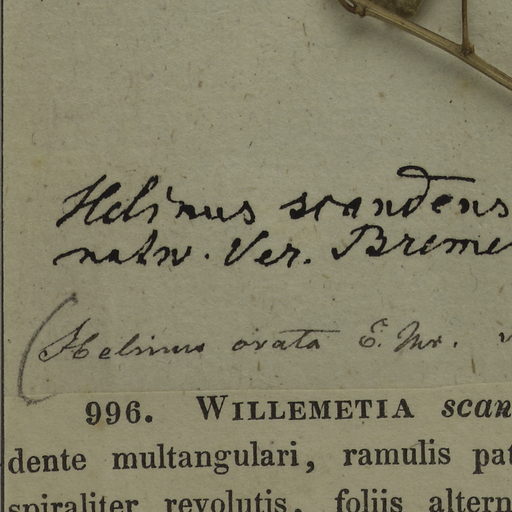 Helinus scandens
natw. Ver. Breme
(Helinus ovata E. Mr.
996. WILLEMETIA scan
dente multangulari, ramulis pat
spiraliter revolutis, foliis altern